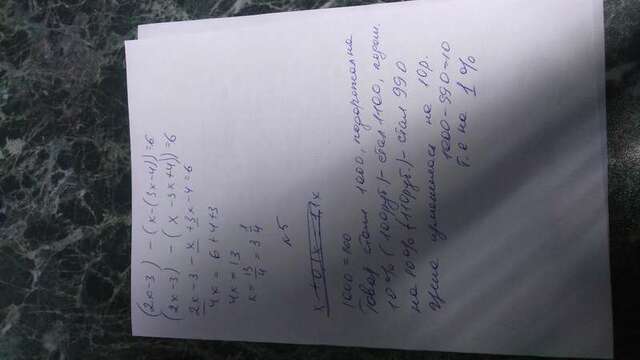 (2x-3) - (x-(3x-4))=6
(2x-3) - (x-3x+4))=6
2x-3 - x +3x-4=6
4x = 6+4+3
4x = 13
x = 13/4 = 3 1/4
№5
1000 = 100
Товар стоил 1000, подорожал на
10% (100руб)-стал 1100, потом
на 10% (110руб)-стал 990
Цена изменилась на 10р.
1000-990=10
т.е на 1%